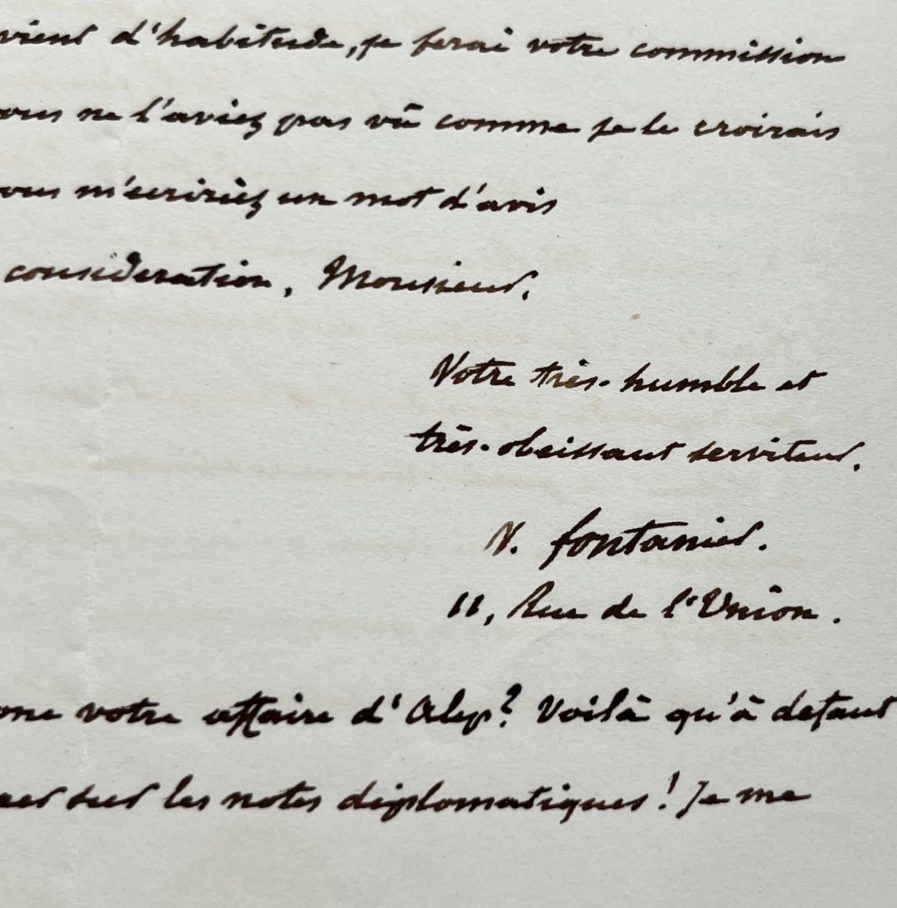 vient d'habitude, je ferai votre commission
vous ne l'aviez pas vû comme je le croirais
vous m'ecririez un mot d'avis
consideration, Monsieur,
Votre très-humble et
très-obeissant serviteur.
V. fontanier.
11, Rue de l'Union.
votre affaire d'Alep? Voilà qu'à defaut
sur les notes diplomatiques! Je me